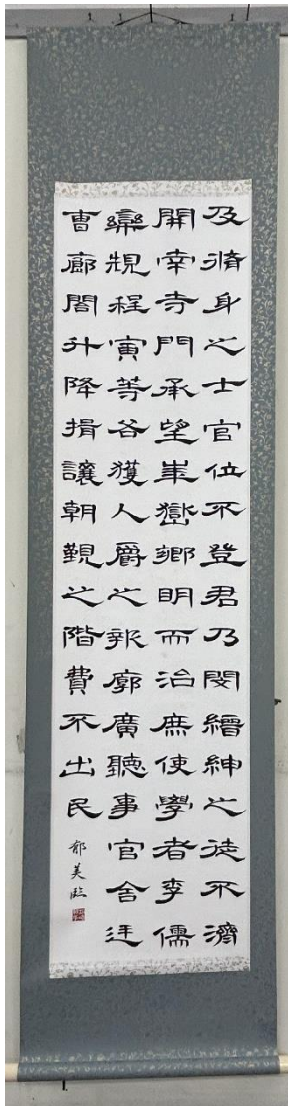 及脩身之士官位不登君乃閔縉紳之徒不濟
開南寺門承望華嶽鄉明而治庶使學者李儒
欒規程寅等各獲人爵之報廓廣聽事官舍廷
曹廊閤升降揖讓朝覲之階費不出民
郁美臨